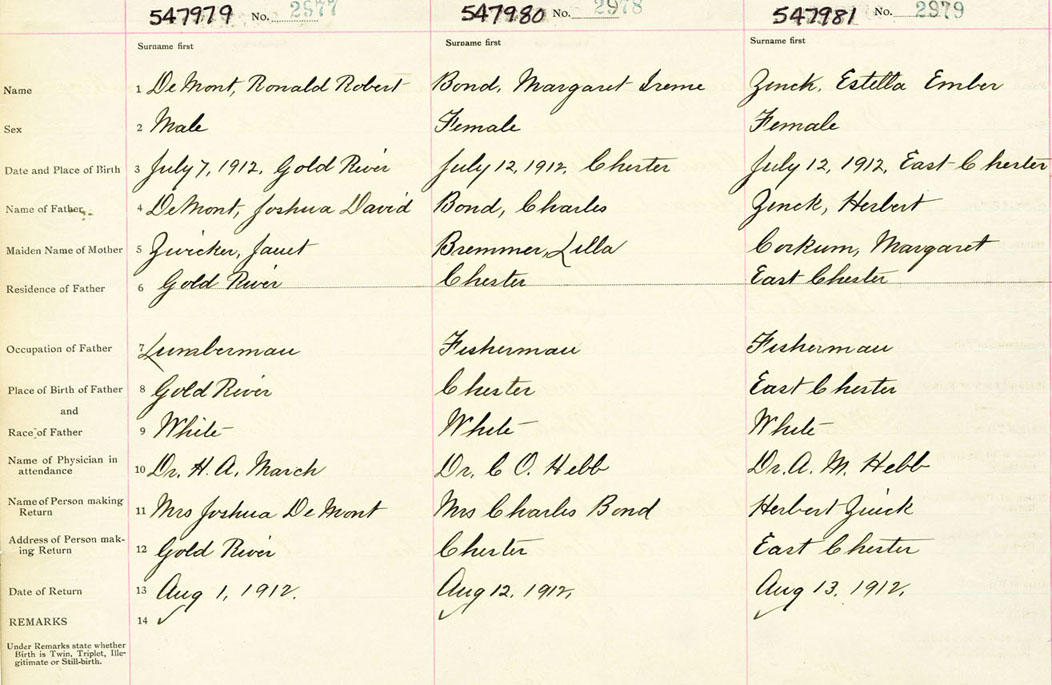 547979 No. 2977 547980 No. 2978 547981 No. 2979
Surname first Surname first Surname first
Name 1 DeMont, Ronald Robert Bond, Margaret Irene Zinck, Estella Ember
Sex 2 Male Female Female
Date and Place of Birth 3 July 7, 1912, Gold River July 12, 1912, Chester July 12, 1912, East Chester
Name of Father 4 DeMont, Joshua David Bond, Charles Zinck, Herbert
Maiden Name of Mother 5 Zwicker, Janet Bremmer, Lilla Corkum, Margaret
Residence of Father 6 Gold River Chester East Chester
Occupation of Father 7 Lumberman Fisherman Fisherman
Place of Birth of Father 8 Gold River Chester East Chester
and
Race of Father 9 White White White
Name of Physician in
attendance 10 Dr. H. A. March Dr. C O. Hebb Dr. A. M. Hebb
Name of Person making
Return 11 Mrs Joshua DeMont Mrs Charles Bond Herbert Zinck
Address of Person mak-
ing Return 12 Gold River Chester East Chester
Date of Return 13 Aug 1, 1912. Aug 12, 1912, Aug 13, 1912,
REMARKS 14
Under Remarks state whether
Birth is Twin, Triplet, Ille-
gitimate or Still-birth.